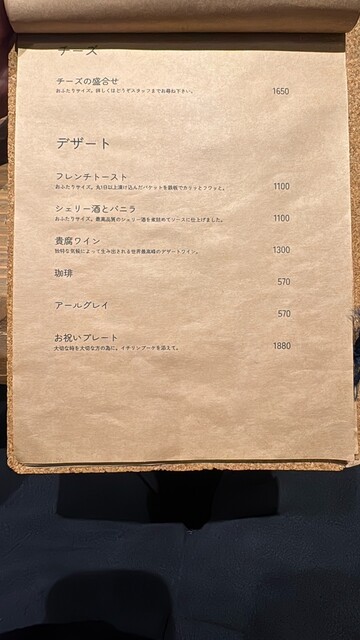 チーズ
チーズの盛合せ
おふたりサイズ。詳しくはどうぞスタッフまでお尋ね下さい。
1650
デザート
フレンチトースト
おふたりサイズ。丸1日以上漬け込んだバケットを鉄板でカリッとフワッと。
1100
シェリー酒とバニラ
おふたりサイズ。最高品質のシェリー酒を煮詰めてソースに仕上げました。
1100
貴腐ワイン
独特な気候によって生み出される世界最高峰のデザートワイン。
1300
珈琲
570
アールグレイ
570
お祝いプレート
大切な時を大切な方の為に。イチリンブーケを添えて。
1880